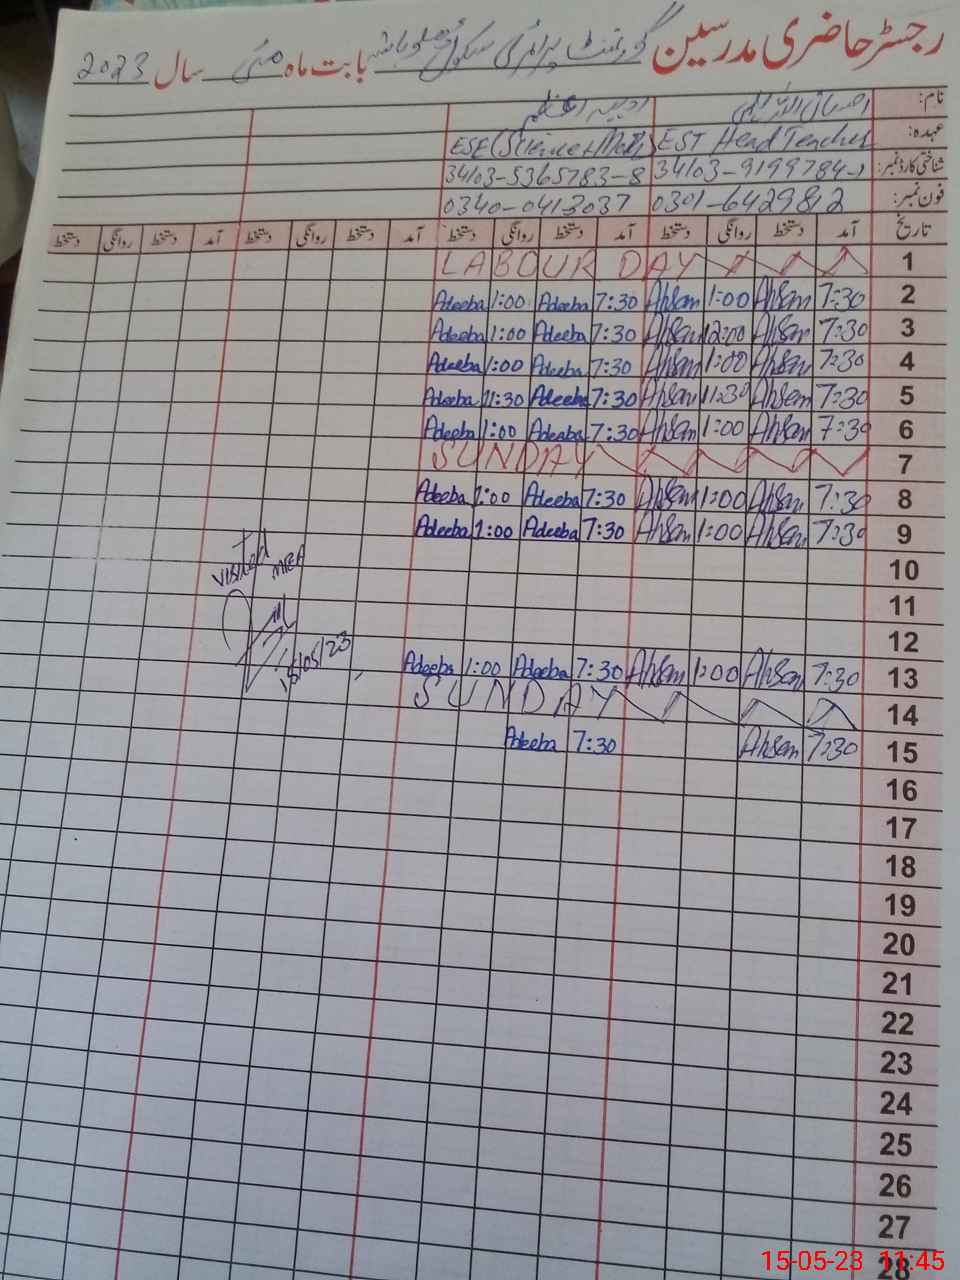 رجسٹر حاضری مدرسین گورنمنٹ پرائمری سکول بابت ماہ مئی سال 2023
نام:
عہدہ: EST Head Teacher ESE (Science + Math)
شناختی کارڈ نمبر: 34103-9199784-1 34103-5365783-8
فون نمبر: 0301-6429812 0340-0413037
تاریخ آمد دستخط روانگی دستخط آمد دستخط روانگی دستخط آمد دستخط روانگی دستخط آمد دستخط روانگی دستخط
1 LABOUR DAY
2 7:30 Ahsan 1:00 Ahsan 7:30 Adeeba 1:00 Adeeba
3 7:30 Ahsan 12:00 Ahsan 7:30 Adeeba 1:00 Adeeba
4 7:30 Ahsan 1:00 Ahsan 7:30 Adeeba 1:00 Adeeba
5 7:30 Ahsan 11:30 Ahsan 7:30 Adeeba 11:30 Adeeba
6 7:30 Ahsan 1:00 Ahsan 7:30 Adeeba 1:00 Adeeba
7 SUNDAY
8 7:30 Ahsan 1:00 Ahsan 7:30 Adeeba 1:00 Adeeba
9 7:30 Ahsan 1:00 Ahsan 7:30 Adeeba 1:00 Adeeba
10
11
12
13 7:30 Ahsan 1:00 Ahsan 7:30 Adeeba 1:00 Adeeba
14 SUNDAY
15 7:30 Ahsan 7:30 Adeeba
visited MEA
15/05/23
16
17
18
19
20
21
22
23
24
25
26
27
28
15-05-23 11:45